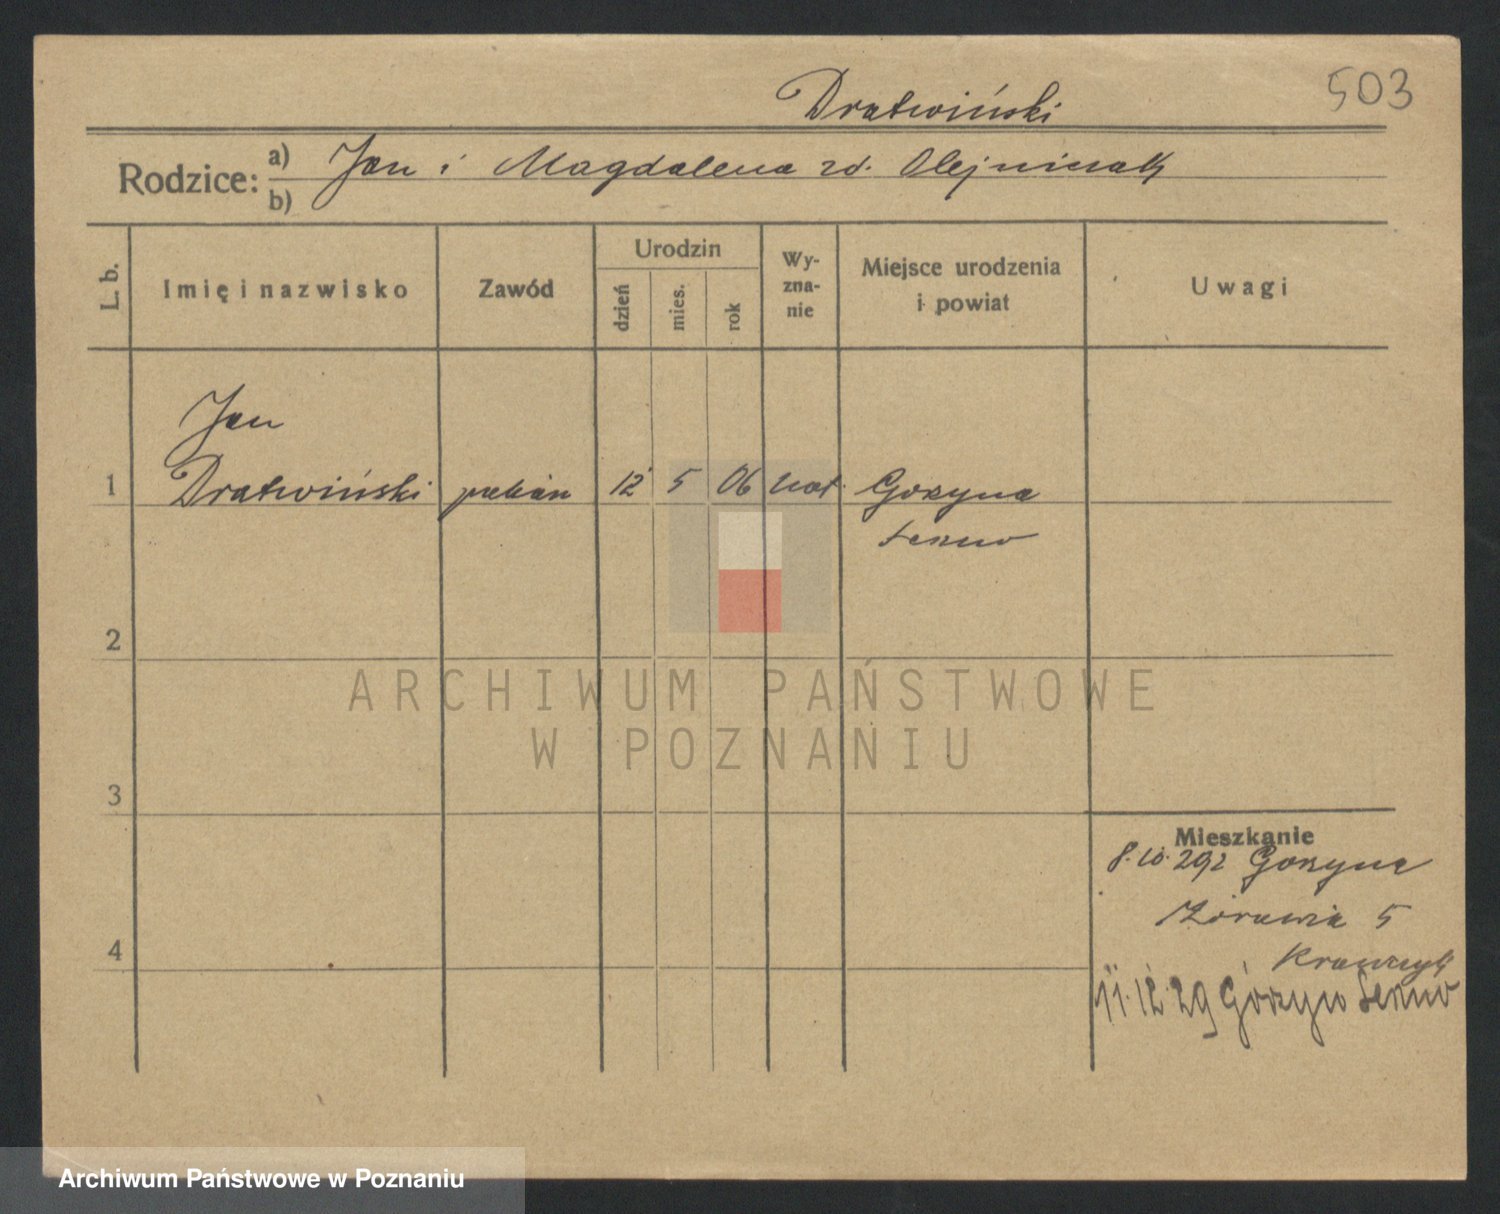 503
Dratwiński
Rodzice: a) Jan i Magdalena zd. Olejniczak
b)
L. b.
Imię i nazwisko
Zawód
Urodzin
dzień
mies.
rok
Wy-
zna-
nie
Miejsce urodzenia
i powiat
Uwagi
Jan
1 Dratwiński 12 5 06 kat. Gorzyna
Leszno
2
3
4
Mieszkanie
8.10.29 z Gorzyna
Żórawia 5
Krawczyk
11.12.29 Górzyn Leszno
ARCHIWUM PAŃSTWOWE
W POZNANIU
Archiwum Państwowe w Poznaniu